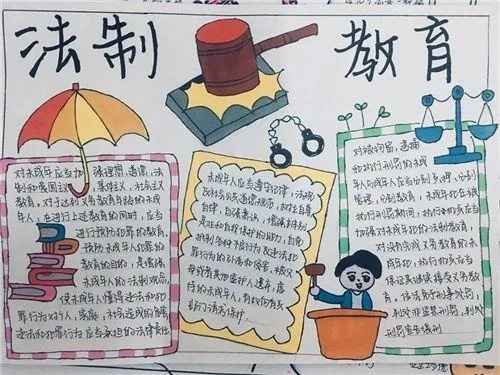 法制
教育
对未成年人应当加强理想、道德、法
制和爱国主义、集体主义、社会主义
教育。对于达到义务教育年龄的未成
年人，在进行上述教育的同时，应当
进行预防犯罪的教育。
预防未成年人犯罪的
教育的目的，是增强
未成年人的法制观念，
使未成年人懂得违法和犯
罪行为对个人、家庭、社会造成的
违法和犯罪行为应当承担的法律责任
未成年人应当遵守法律、法规
及社会公共道德规范，树立自尊、
自律、自强意识，增强辨别
是非和自我保护的能力，自觉
抵制各种不良行为及违法犯
罪行为的引诱和侵害。被父
母或者其他监护人遗弃、虐
待的未成年人，有权向有关
部门请求保护
对被拘留、逮捕
和执行刑罚的未成
年人与成年人应当分别关押、分别
管理、分别教育。未成年犯在被
执行刑罚期间，执行机关应当
加强对未成年犯的法制教育，
对没有完成义务教育的未
成年犯，执行机关应当
保证其继续接受义务教
育。依法免予刑事处罚、
判处非监禁刑罚、判处
刑罚宣告缓刑